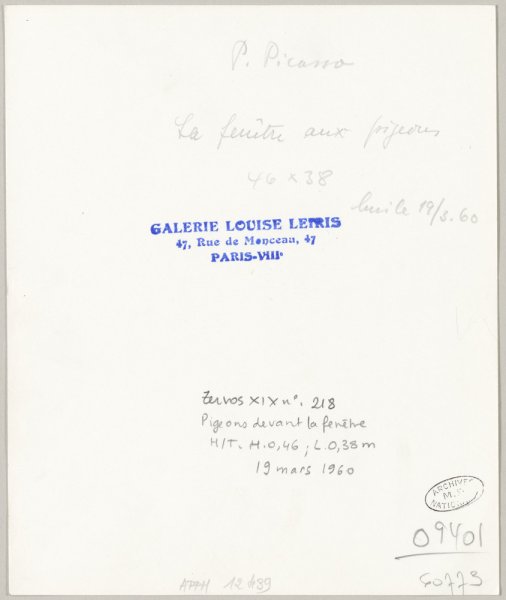 P. Picasso
La fenêtre aux pigeons
46 x 38
huile 19/3.60
GALERIE LOUISE LEIRIS
47, Rue de Monceau, 47
PARIS-VIIIe
Zervos XIX n°. 218
Pigeons devant la fenêtre
H/T. H.0,46 ; L.0,38m
19 mars 1960
ARCHIVES
M.
NATIO
09401
APPH 12439